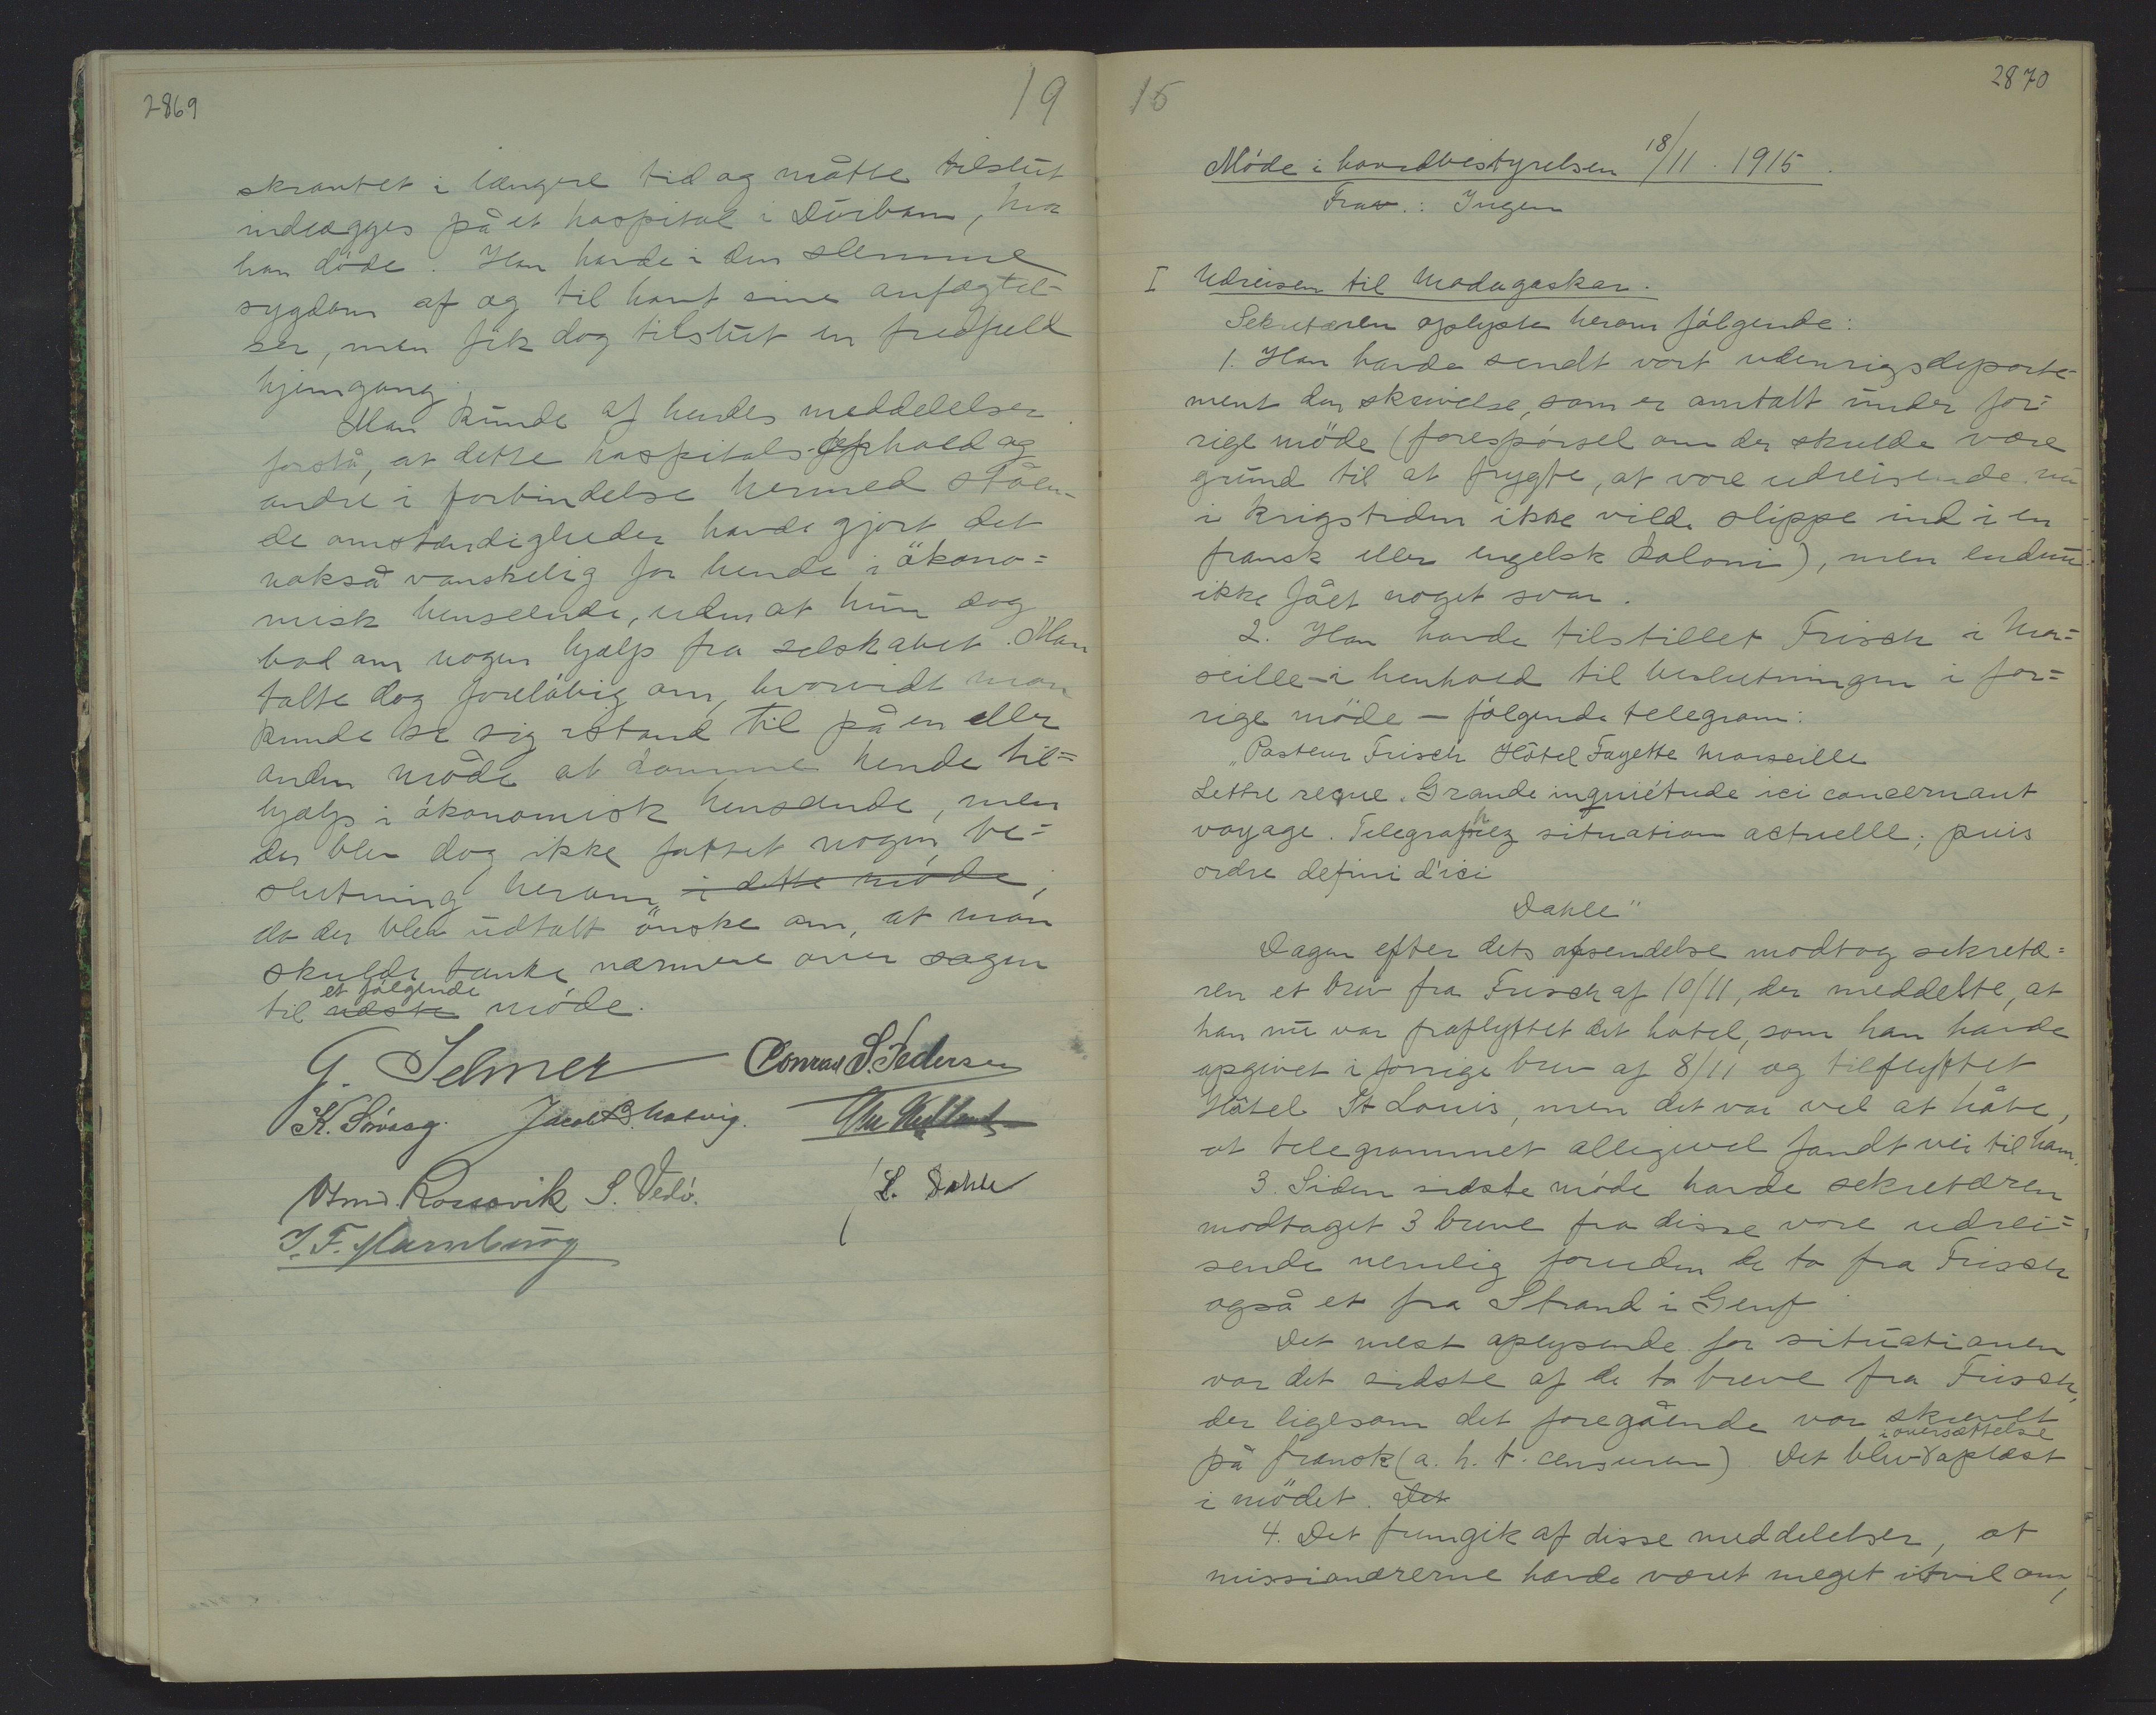 2869
19
skrantet i længere tid og måtte tilslut
indlægges på et hospital i Durban, hvor
han döde. Han havde i den slemme
sygdom af og til havt sine anfægtel-
ser, men fik dog tilslut en fredfuld
hjemgang.
Man kunde af hendes meddelelser
forstå, at dette hospitals-ophold og
andre i forbindelse hermed ståen-
de omstændigheder havde gjort det
nokså vanskelig for hende i ökono=
misk henseende, uden at hun dog
bad om nogen hjælp fra selskabet. Man
talte dog foreløbig om, hvorvidt man
kunde se sig istand til på en eller
anden måde at komme hende til=
hjælp i ökonomisk henseende, men
der blev dog ikke fattet nogen be=
slutning herom i dette möde,
da der blev udtalt önske om, at man
skulde tænke nærmere over sagen
et fölgende
til næste möde.
G. Selmer Conrad S. Pedersen
K. Sövaag. Jacob B. Natvig.
Rossavik S. Vedö. L. Dahle
2870
15
Möde i hovedbestyrelsen 18/11. 1915.
Frav.: Ingen
I Udreisen til Madagaskar.
Sekretæren oplyste herom fölgende:
1. Han havde sendt vort udenrigsdeparte-
ment den skrivelse, som er omtalt under for=
rige möde (forespörsel om der skulde være
grund til at frygte, at vore udreisende nu
i krigstiden ikke vilde slippe ind i en
fransk eller engelsk koloni), men endnu
ikke fået noget svar.
2. Han havde tilstillet Frisch i Mar=
seille – i henhold til beslutningen i for=
rige möde – fölgende telegram:
„Pasteur Frisch Hôtel Fayette Marseille
Lettre reçue. Grande inquiétude ici concernant
voyage. Telegraphiez situation actuelle; puis
ordre defini d'ici
Dahle"
Dagen efter dets afsendelse modtog sekretæ=
ren et brev fra Frisch af 10/11, der meddelte, at
han nu var fraflyttet det hotel, som han havde
opgivet i forrige brev af 8/11 og tilflyttet
Hôtel St Louis, men det var vel at håbe,
at telegrammet alligevel fandt vei til ham.
3. Siden sidste möde havde sekretæren
modtaget 3 breve fra disse vore udrei=
sende nemlig foruden de to fra Frisch
også et fra Strand i Genf.
Det mest oplysende for situationen
var det sidste af de to breve fra Frisch,
der ligesom det foregående var skrevet
i oversættelse
på fransk (a. h. t. censuren) Det blev oplæst
i mödet. Det
4. Det fremgik af disse meddelelser, at
missionærerne havde været meget itvil om,